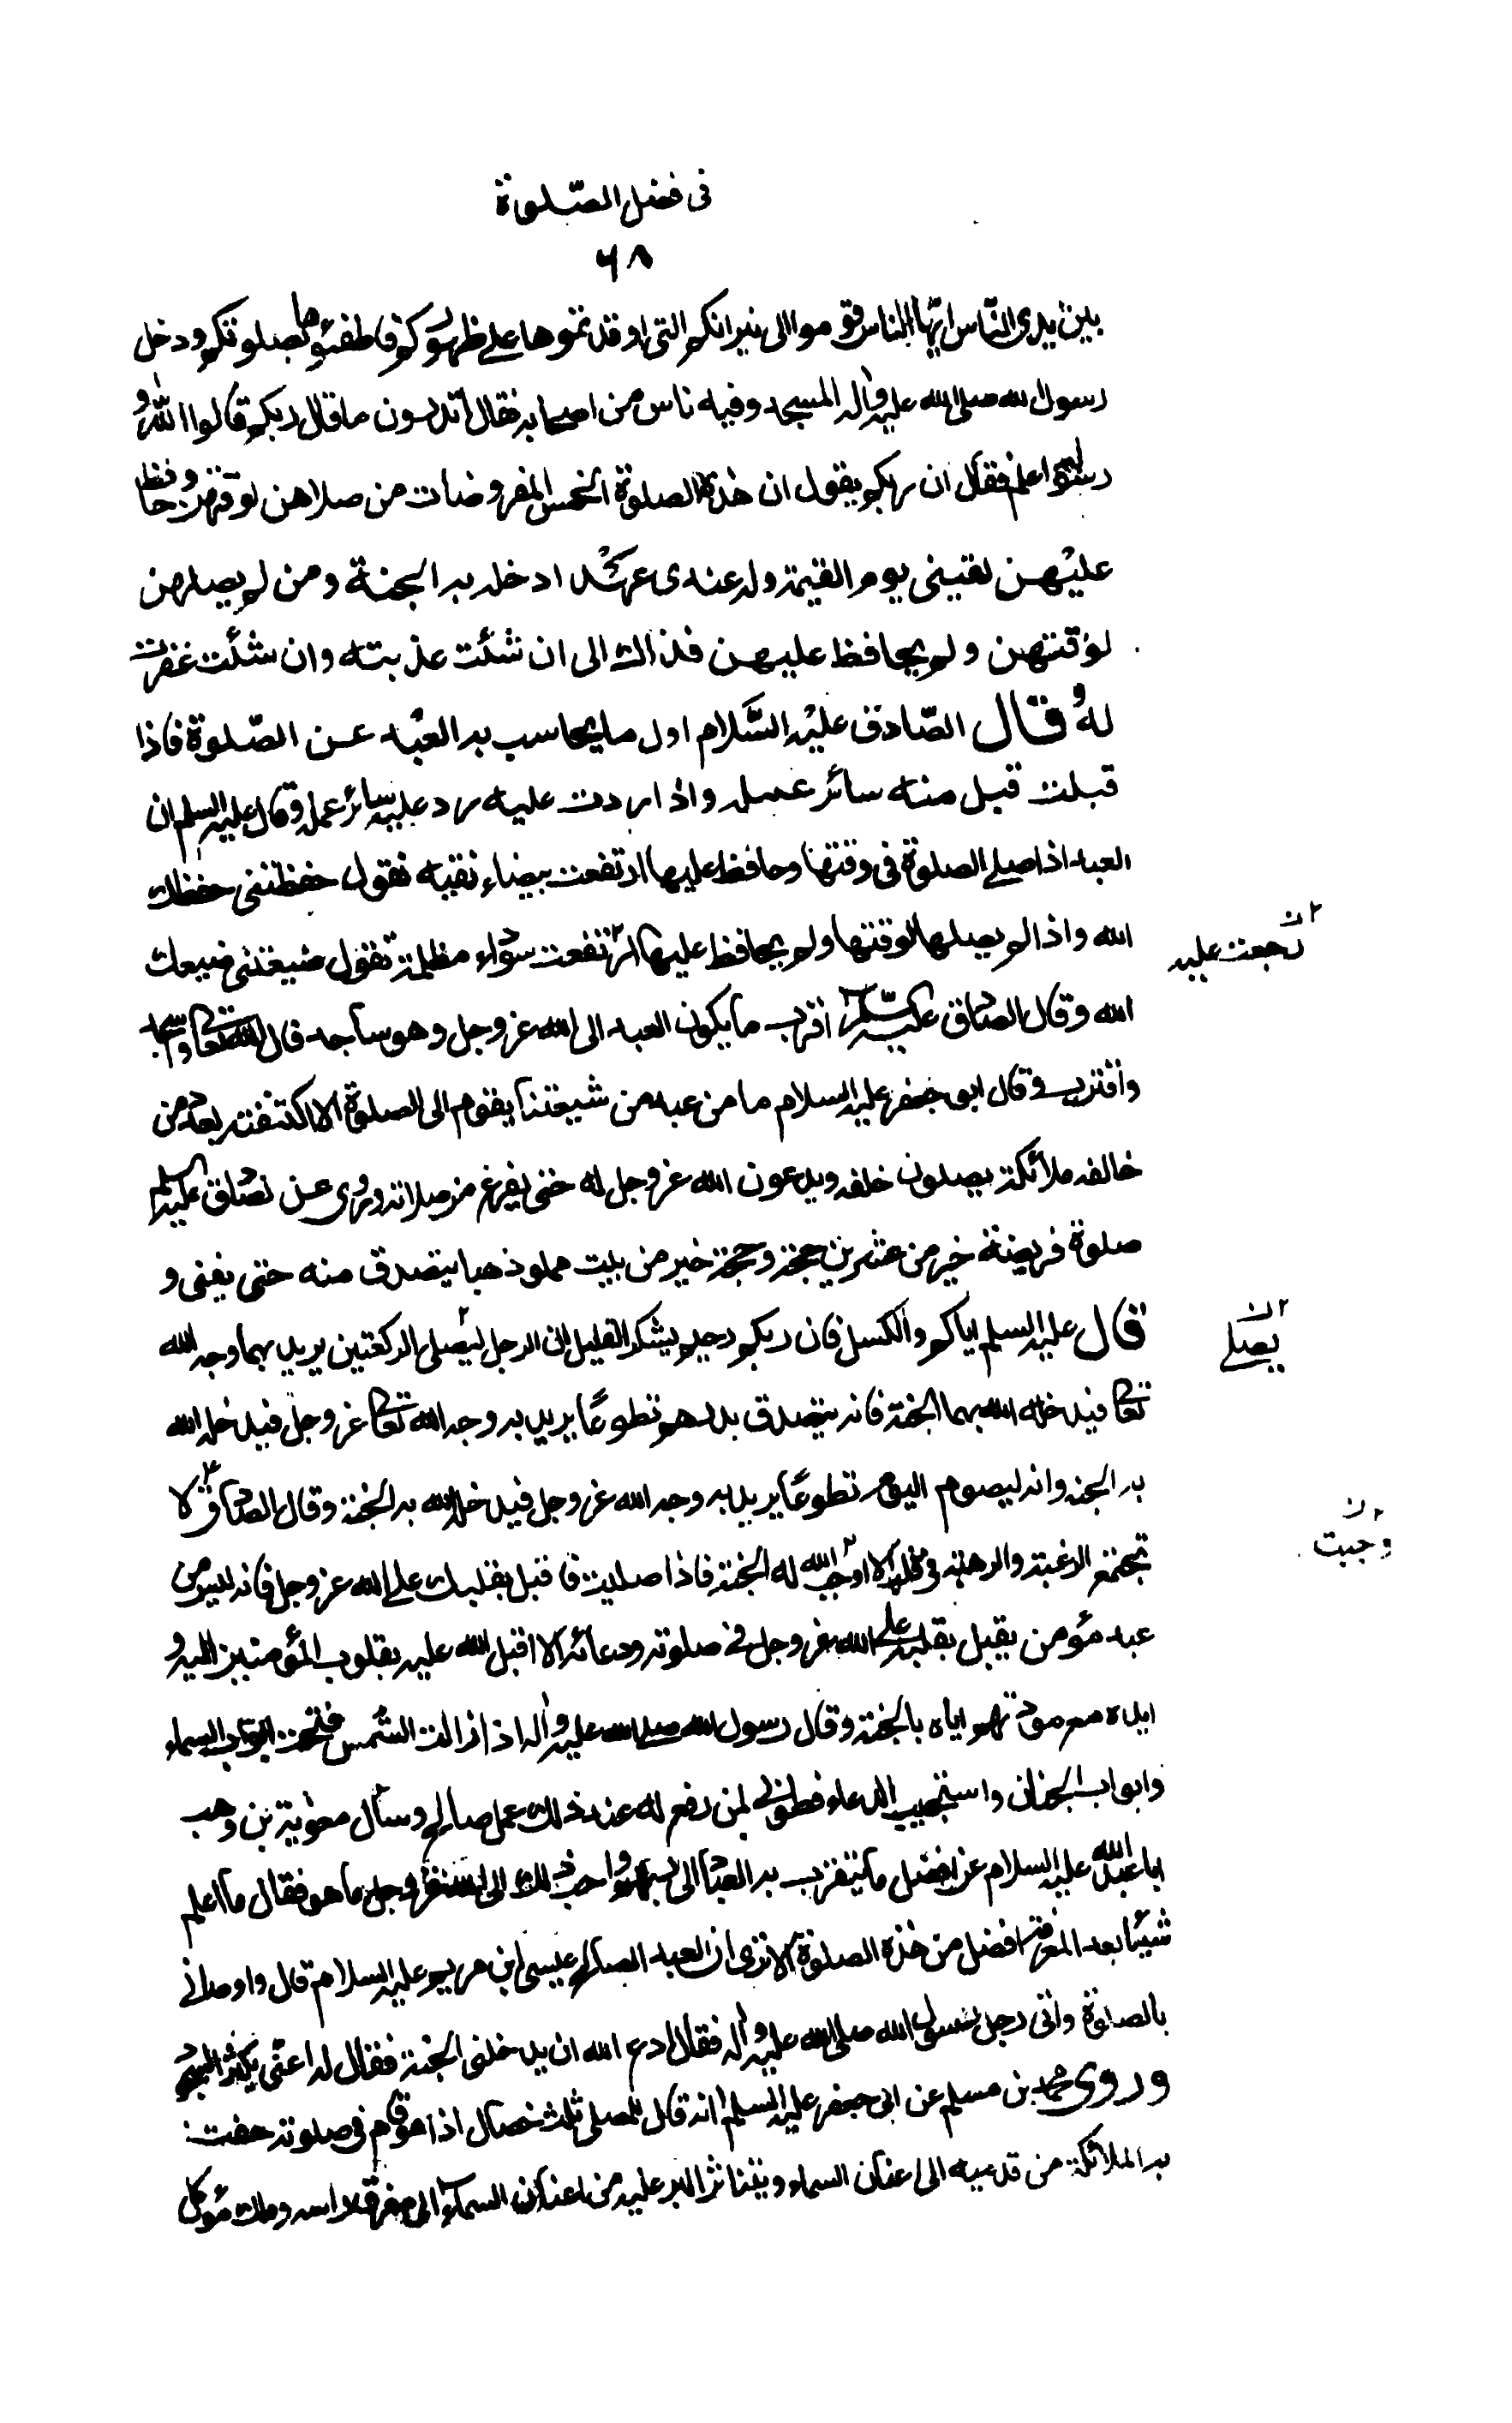 فی فضل الصّلوة
۶۸
بین یدی النّاس ایّها الناس قوموا الی نیرانکم التی اوقدتموها علی ظهورکم فاطفئوها بصلوتکم ودخل
رسول الله صلی الله علیه واله المسجد وفیه ناس من اصحابه فقال اتدرون ما قال ربکم قالوا الله و
رسوله اعلم فقال ان ربکم یقول ان هذه الصلوة الخمس المفروضات من صلاهن لوقتهن وحافظ
علیهن لقینی یوم القیمة وله عندی عهد ادخله به الجنة ومن لم یصلهن
لوقتهن ولم یحافظ علیهن فذاك الی ان شئت عذبته وان شئت غفرت
له وقال الصّادق علیه السَّلام اول ما یحاسب به العبد عن الصّلوة فاذا
قبلت قبل منه سائر عمله واذا ردت علیه رد علیه سائر عمله وقال علیه السلم ان
العبد اذا صلی الصلوة فی وقتها وحافظ علیها ارتفعت بیضاء نقیه تقول حفظتنی حفظك
الله واذا لم یصلها لوقتها ولم یحافظ علیها ارتفعت سوداء مظلمة تقول ضیعتنی ضیعك
رجعت علیه
الله وقال الصادق علیه السّلم اقرب ما یکون العبد الی الله عز وجل وهو ساجد قال الله تعا واسجد
واقترب وقال ابو جعفر علیه السلام ما من عبد من شیعتنا یقوم الی الصلوة الا اکتنفته بعدد من
خالفه ملائکة یصلون خلفه ویدعون الله عز وجل له حتی یفرغ من صلاته وروی عن الصادق علیه السلم
صلوة فریضة خیر من عشرین حجة وحجة خیر من بیت مملو ذهبا یتصدق منه حتی یفنی و
قال علیه السلم ایاکم والکسل فان ربکم رحیم یشکر القلیل ان الرجل لیصلی الرکعتین یرید بهما وجه الله
یصلی
تعا فیدخله الله بهما الجنة فانه یتصدق بدرهم تطوعًا یرید به وجه الله تعا عز وجل فیدخله الله
به الجنة وانه لیصوم الیوم تطوعًا یرید به وجه الله عز وجل فیدخله الله به الجنة وقال الصادق ع لا
وجبت
تجتمع الرغبة والرهبة فی قلب الا اوجب الله له الجنة فاذا صلیت فاقبل بقلبك علی الله عز وجل فانه لیس من
عبد مؤمن یقبل بقلبه علی الله عز وجل فی صلوته ودعائه الا اقبل الله علیه بقلوب المؤمنین الیه و
ایده مع مودتهم ایاه بالجنة وقال رسول الله صلی الله علیه واله اذا زالت الشمس فتحت ابواب السماء
وابواب الجنان واستجیب الدعاء فطوبی لمن رفع له عند ذلك عمل صالح وسأل معویة بن وهب
ابا عبد الله علیه السلام عن افضل ما یتقرب به العباد الی ربهم واحب ذلك الی الله عز وجل ما هو فقال ما اعلم
شیئا بعد المعرفة افضل من هذه الصلوة الا تری ان العبد الصالح عیسی ابن مریم علیه السلام قال واوصانی
بالصلوة واتی رجل رسول الله صلی الله علیه واله فقال ادع الله ان یدخلنی الجنة فقال له اعنّی بکثرة السجود
وروی محمد بن مسلم عن ابی جعفر علیه السلم انه قال للمصلی ثلث خصال اذا هو قام فی صلوته حفت
به الملائکة من قدمیه الی اعنان السماء ویتناثر البر علیه من اعنان السماء الی مفرق راسه وملك موکل